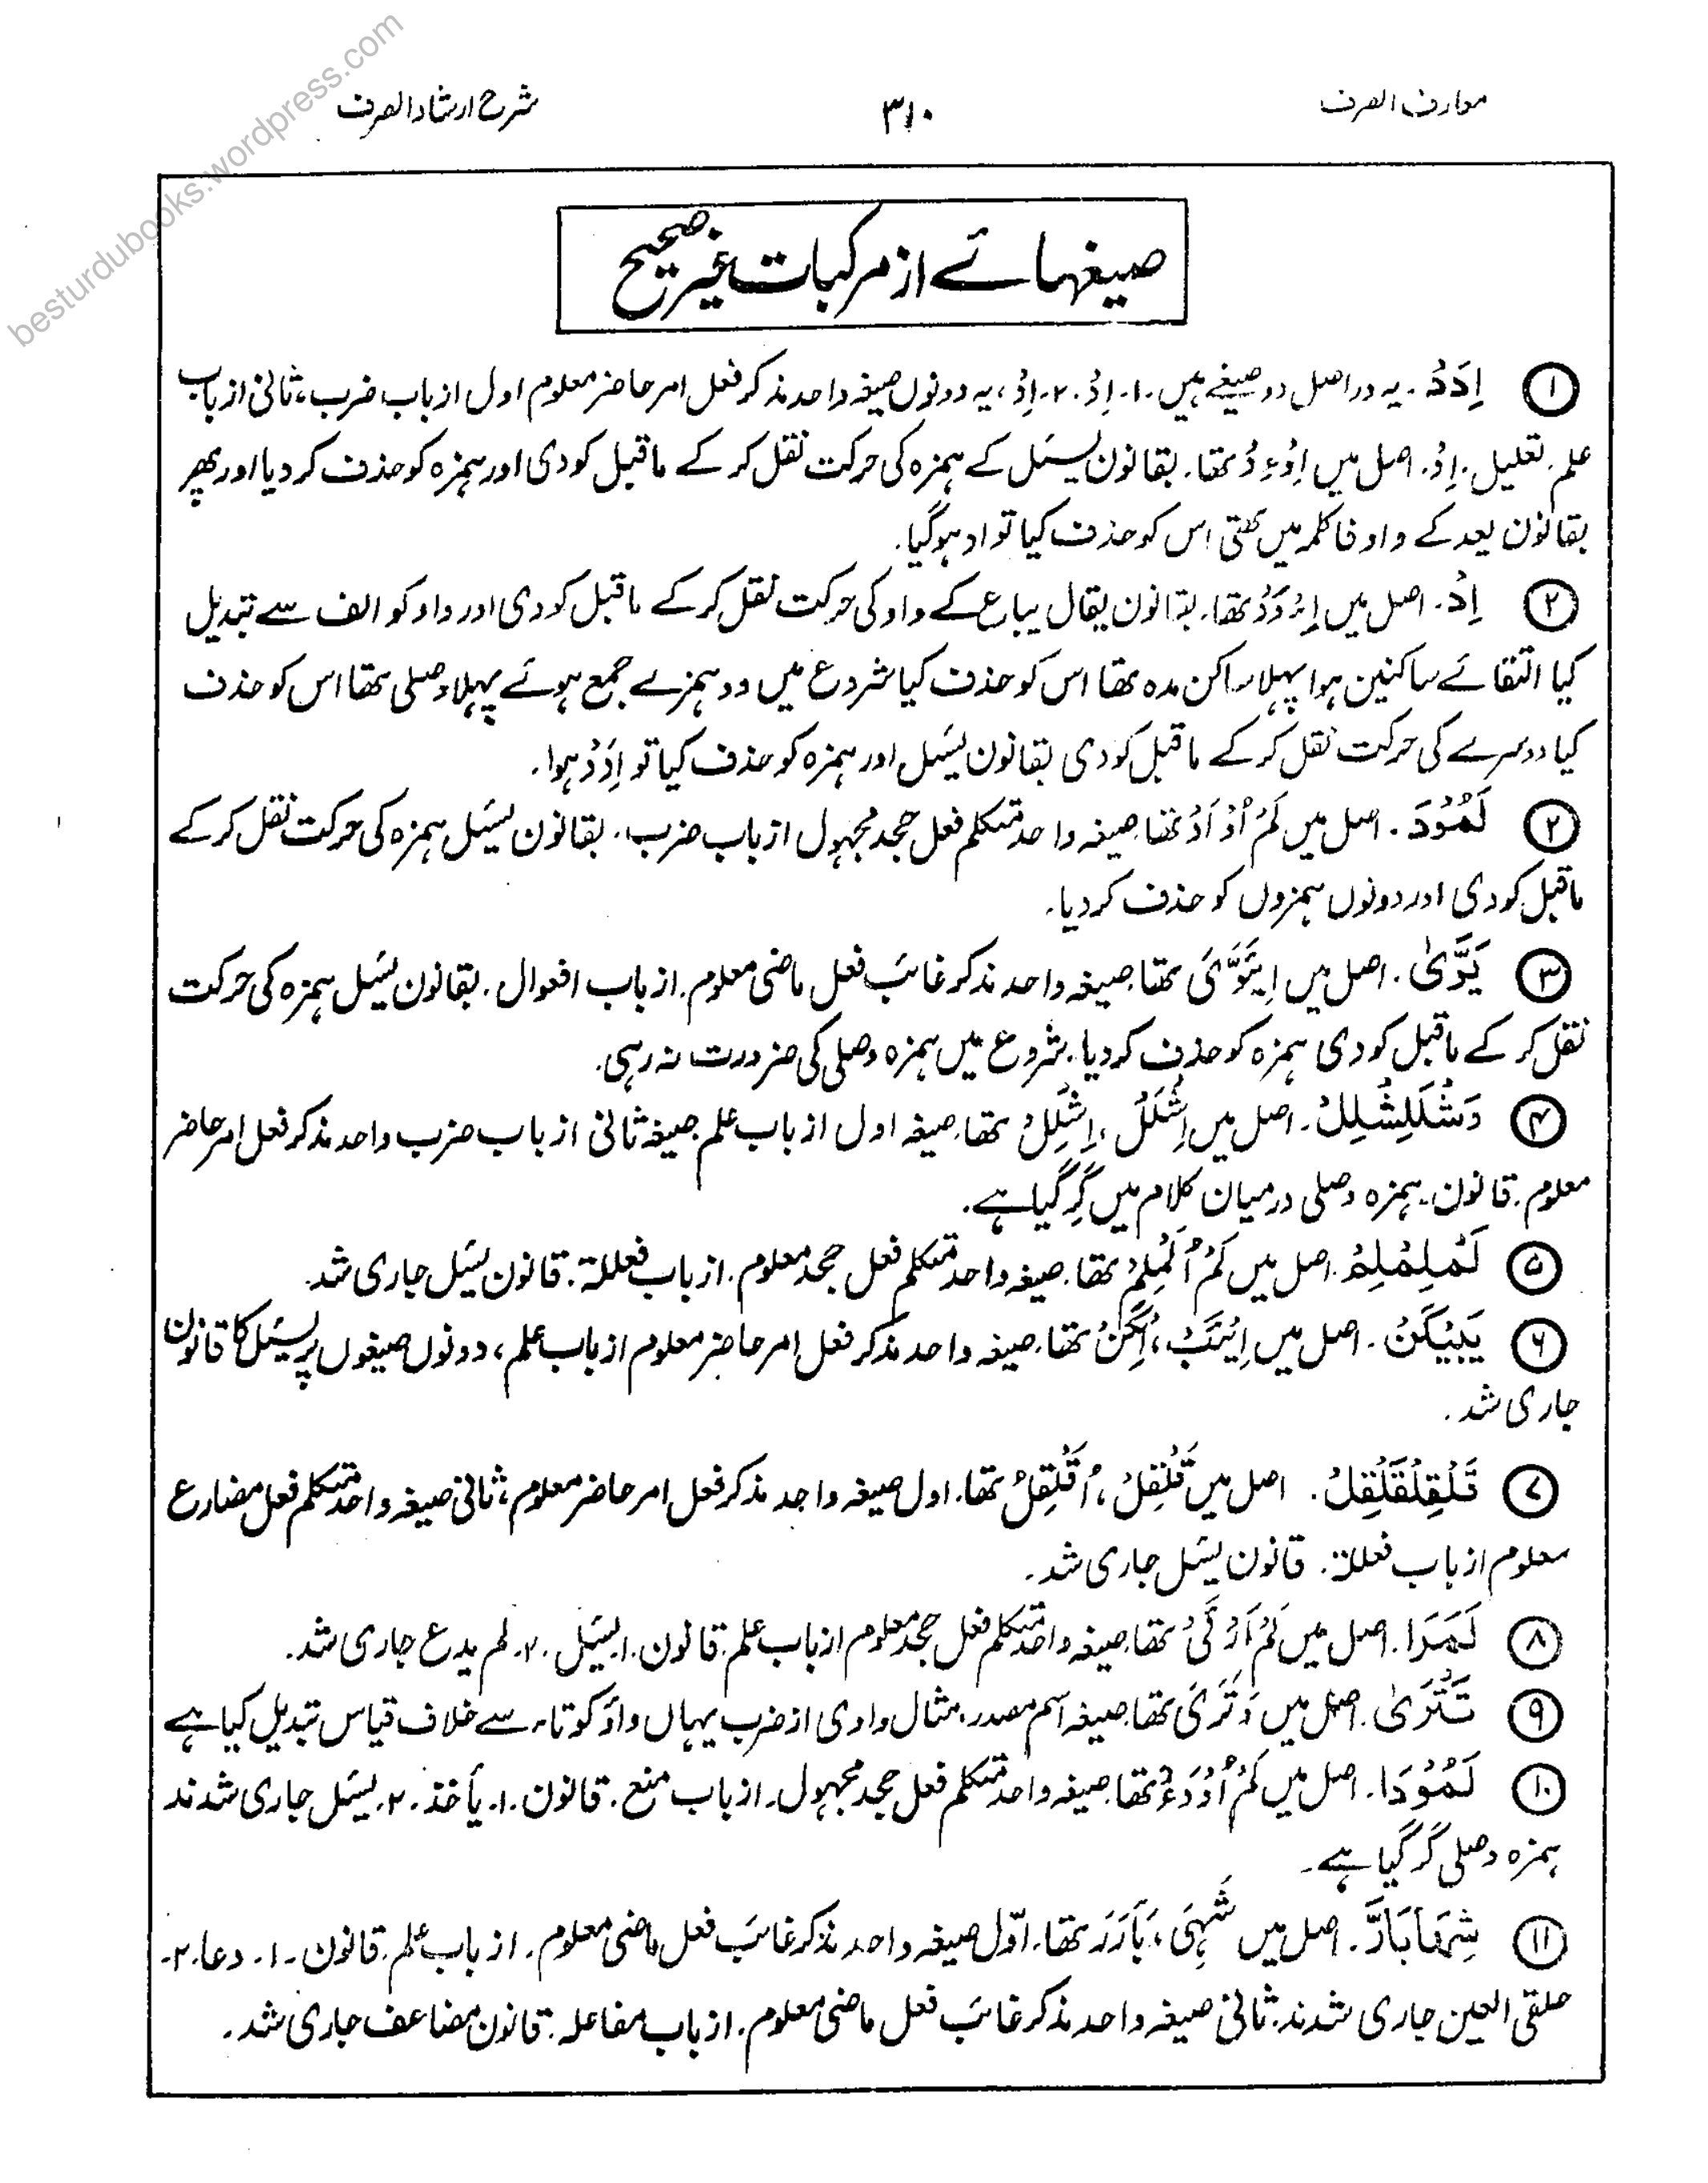 معارف الصرف
۳۱۰
شرح ارشاد الصرف
besturdubooks.wordpress.com
صیغہائے از مرکبات غیر صحیح
① اِدَدْ ۔ یہ دراصل دو صیغے ہیں ۔۱۔ اِدْ ۔۲۔ اِدْ ، یہ دونوں صیغہ واحد مذکر فعل امر حاضر معلوم اول از باب ضرب، ثانی از باب
علم ۔ تعلیل ۔ اِدْ ۔ اصل میں اِوْءِدْ تھا ۔ بقانون یسئل کے ہمزہ کی حرکت نقل کر کے ماقبل کو دی اور ہمزہ کو حذف کر دیا اور پھر
بقانون یعد کے واو فا کلمہ میں تھی اس کو حذف کیا تو اد ہو گیا ۔
② اِدْ ۔ اصل میں اِءْوَدْ تھا ۔ بقانون یقال یباع کے واو کی حرکت نقل کر کے ماقبل کو دی اور واو کو الف سے تبدیل
کیا التقائے ساکنین ہوا پہلا ساکن مدہ تھا اس کو حذف کیا شروع میں دو ہمزے جمع ہوئے پہلا وصلی تھا اس کو حذف
کیا دوسرے کی حرکت نقل کر کے ماقبل کو دی بقانون یسئل اور ہمزہ کو حذف کیا تو اِدَدْ ہوا ۔
② لَمُوْدَ ۔ اصل میں لَمْ اُوْأَدْ تھا ۔ صیغہ واحد متکلم فعل جحد مجہول از باب ضرب ۔ بقانون یسئل ہمزہ کی حرکت نقل کر کے
ماقبل کو دی اور دونوں ہمزوں کو حذف کر دیا ۔
③ یَوَّیٰ ۔ اصل میں تھا ۔ صیغہ واحد مذکر غائب فعل ماضی معلوم ۔ از باب افعوال ۔ بقانون یسئل ہمزہ کی حرکت
نقل کر کے ماقبل کو دی ہمزہ کو حذف کر دیا ۔ شروع میں ہمزہ وصلی کی ضرورت نہ رہی ۔
④ وَشْلَلِشْلِلْ ۔ اصل میں اِشْلَلْ ، اِشْلِلْ تھا ۔ صیغہ اول از باب علم صیغہ ثانی از باب ضرب واحد مذکر فعل امر حاضر
معلوم ۔ قانون ۔ ہمزہ وصلی درمیان کلام میں گِر گیا ہے ۔
⑤ لَمُلِمْلِمْ ۔ اصل میں لَمْ اُلَمْلِمْ تھا ۔ صیغہ واحد متکلم فعل جحد معلوم ۔ از باب فعللۃ ۔ قانون یسئل جاری شد ۔
⑥ یَبِیْگَنْ ۔ اصل میں تھا ۔ صیغہ واحد مذکر فعل امر حاضر معلوم از باب علم ، دونوں صیغوں پر یسئل کا قانون
جاری شد ۔
⑦ قَلْقِلُقَلْقِلُ ۔ اصل میں قَلْقِلْ ، اُقَلْقِلُ تھا ۔ اول صیغہ واحد مذکر فعل امر حاضر معلوم ، ثانی صیغہ واحد متکلم فعل مضارع
معلوم از باب فعللۃ ۔ قانون یسئل جاری شد ۔
⑧ لَمَرَا ۔ اصل میں لَمْ اَرْءَیْ تھا ۔ صیغہ واحد متکلم فعل جحد معلوم از باب علم ۔ قانون ۔۱۔ یسئل ۔۲۔ لم یدع جاری شد ۔
⑨ تَتْرَیٰ ۔ اصل میں وَتْرَیَ تھا ۔ صیغہ اسم مصدر ، مثال واوی از ضرب یہاں واؤ کو تاء سے خلاف قیاس تبدیل کیا ہے
⑩ لَمُوْدَا ۔ اصل میں لَمْ اُوْدَءْ تھا ۔ صیغہ واحد متکلم فعل جحد مجہول ۔ از باب منع ۔ قانون ۔۱۔ یأخذ ۔۲۔ یسئل جاری شدند
ہمزہ وصلی گر گیا ہے ۔
⑪ شِہْمَابَارَّ ۔ اصل میں شَہِیَ ، بَارَرَ تھا ۔ اوّل صیغہ واحد مذکر غائب فعل ماضی معلوم ۔ از باب علم ۔ قانون ۔۱۔ دعا ۔۲۔
حلقی العین جاری شدند ۔ ثانی صیغہ واحد مذکر غائب فعل ماضی معلوم ۔ از باب مفاعلہ ۔ قانون مضاعف جاری شد ۔